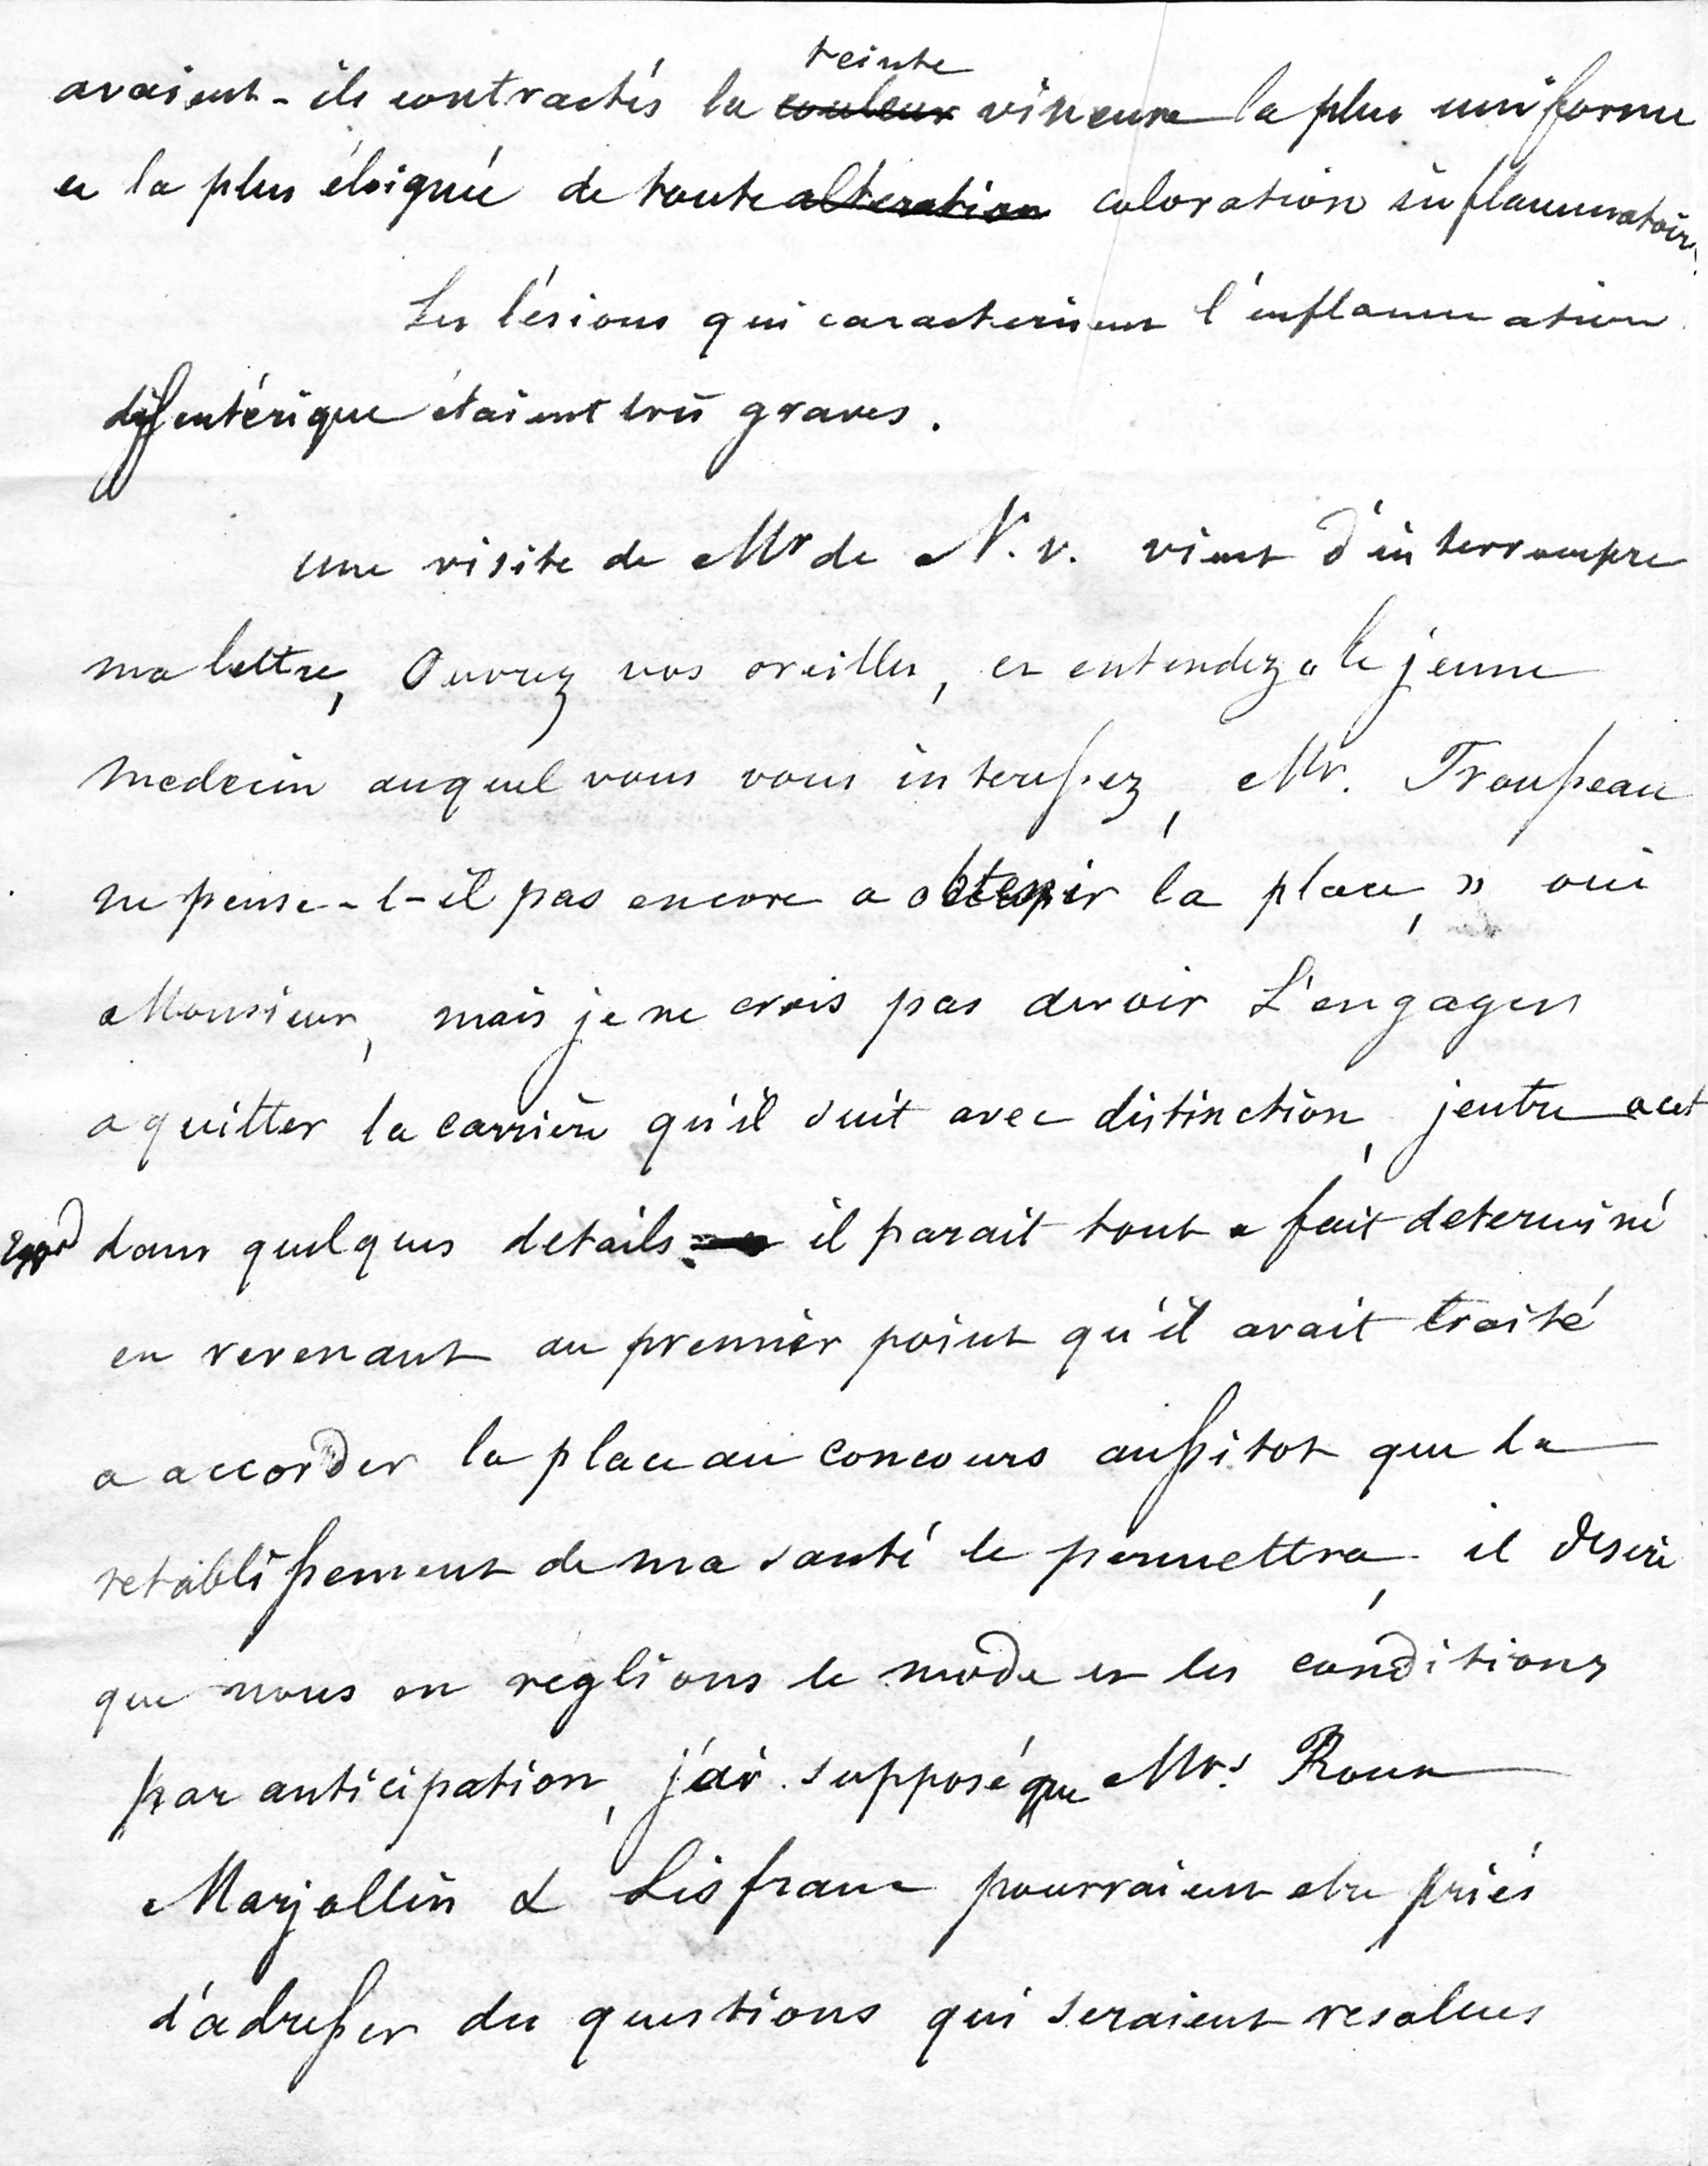 teinte
avaient-ils contractés la couleur vineuse la plus uniforme
et la plus éloignée de toute altération coloration inflammatoire.
Les lésions qui caracterisent l'inflammation
dyssentérique étaient très graves.
une visite de Mr de N. v. vient d'interrompre
ma lettre, Ouvrez vos oreilles, et entendez « le jeune
medecin auquel vous vous interessez, Mr. Trousseau
ne pense-t-il pas encore a obtenir la place, » oui
Monsieur, mais je ne crois pas devoir L'engager
a quitter la carrière qu'il suit avec distinction, jentre a cet
Egard dans quelques details il parait tout a fait determiné
en revenant au premier point qu'il avait traité
a accorder la place au concours aussitot que le
retablissement de ma santé le permettra, il desire
que nous en reglions le mode et les conditions
par anticipation, j'ai supposé que Mrs. Roux
Marjollin & Lisfranc pourraient etre priés
d'adresser des questions qui seraient resolues